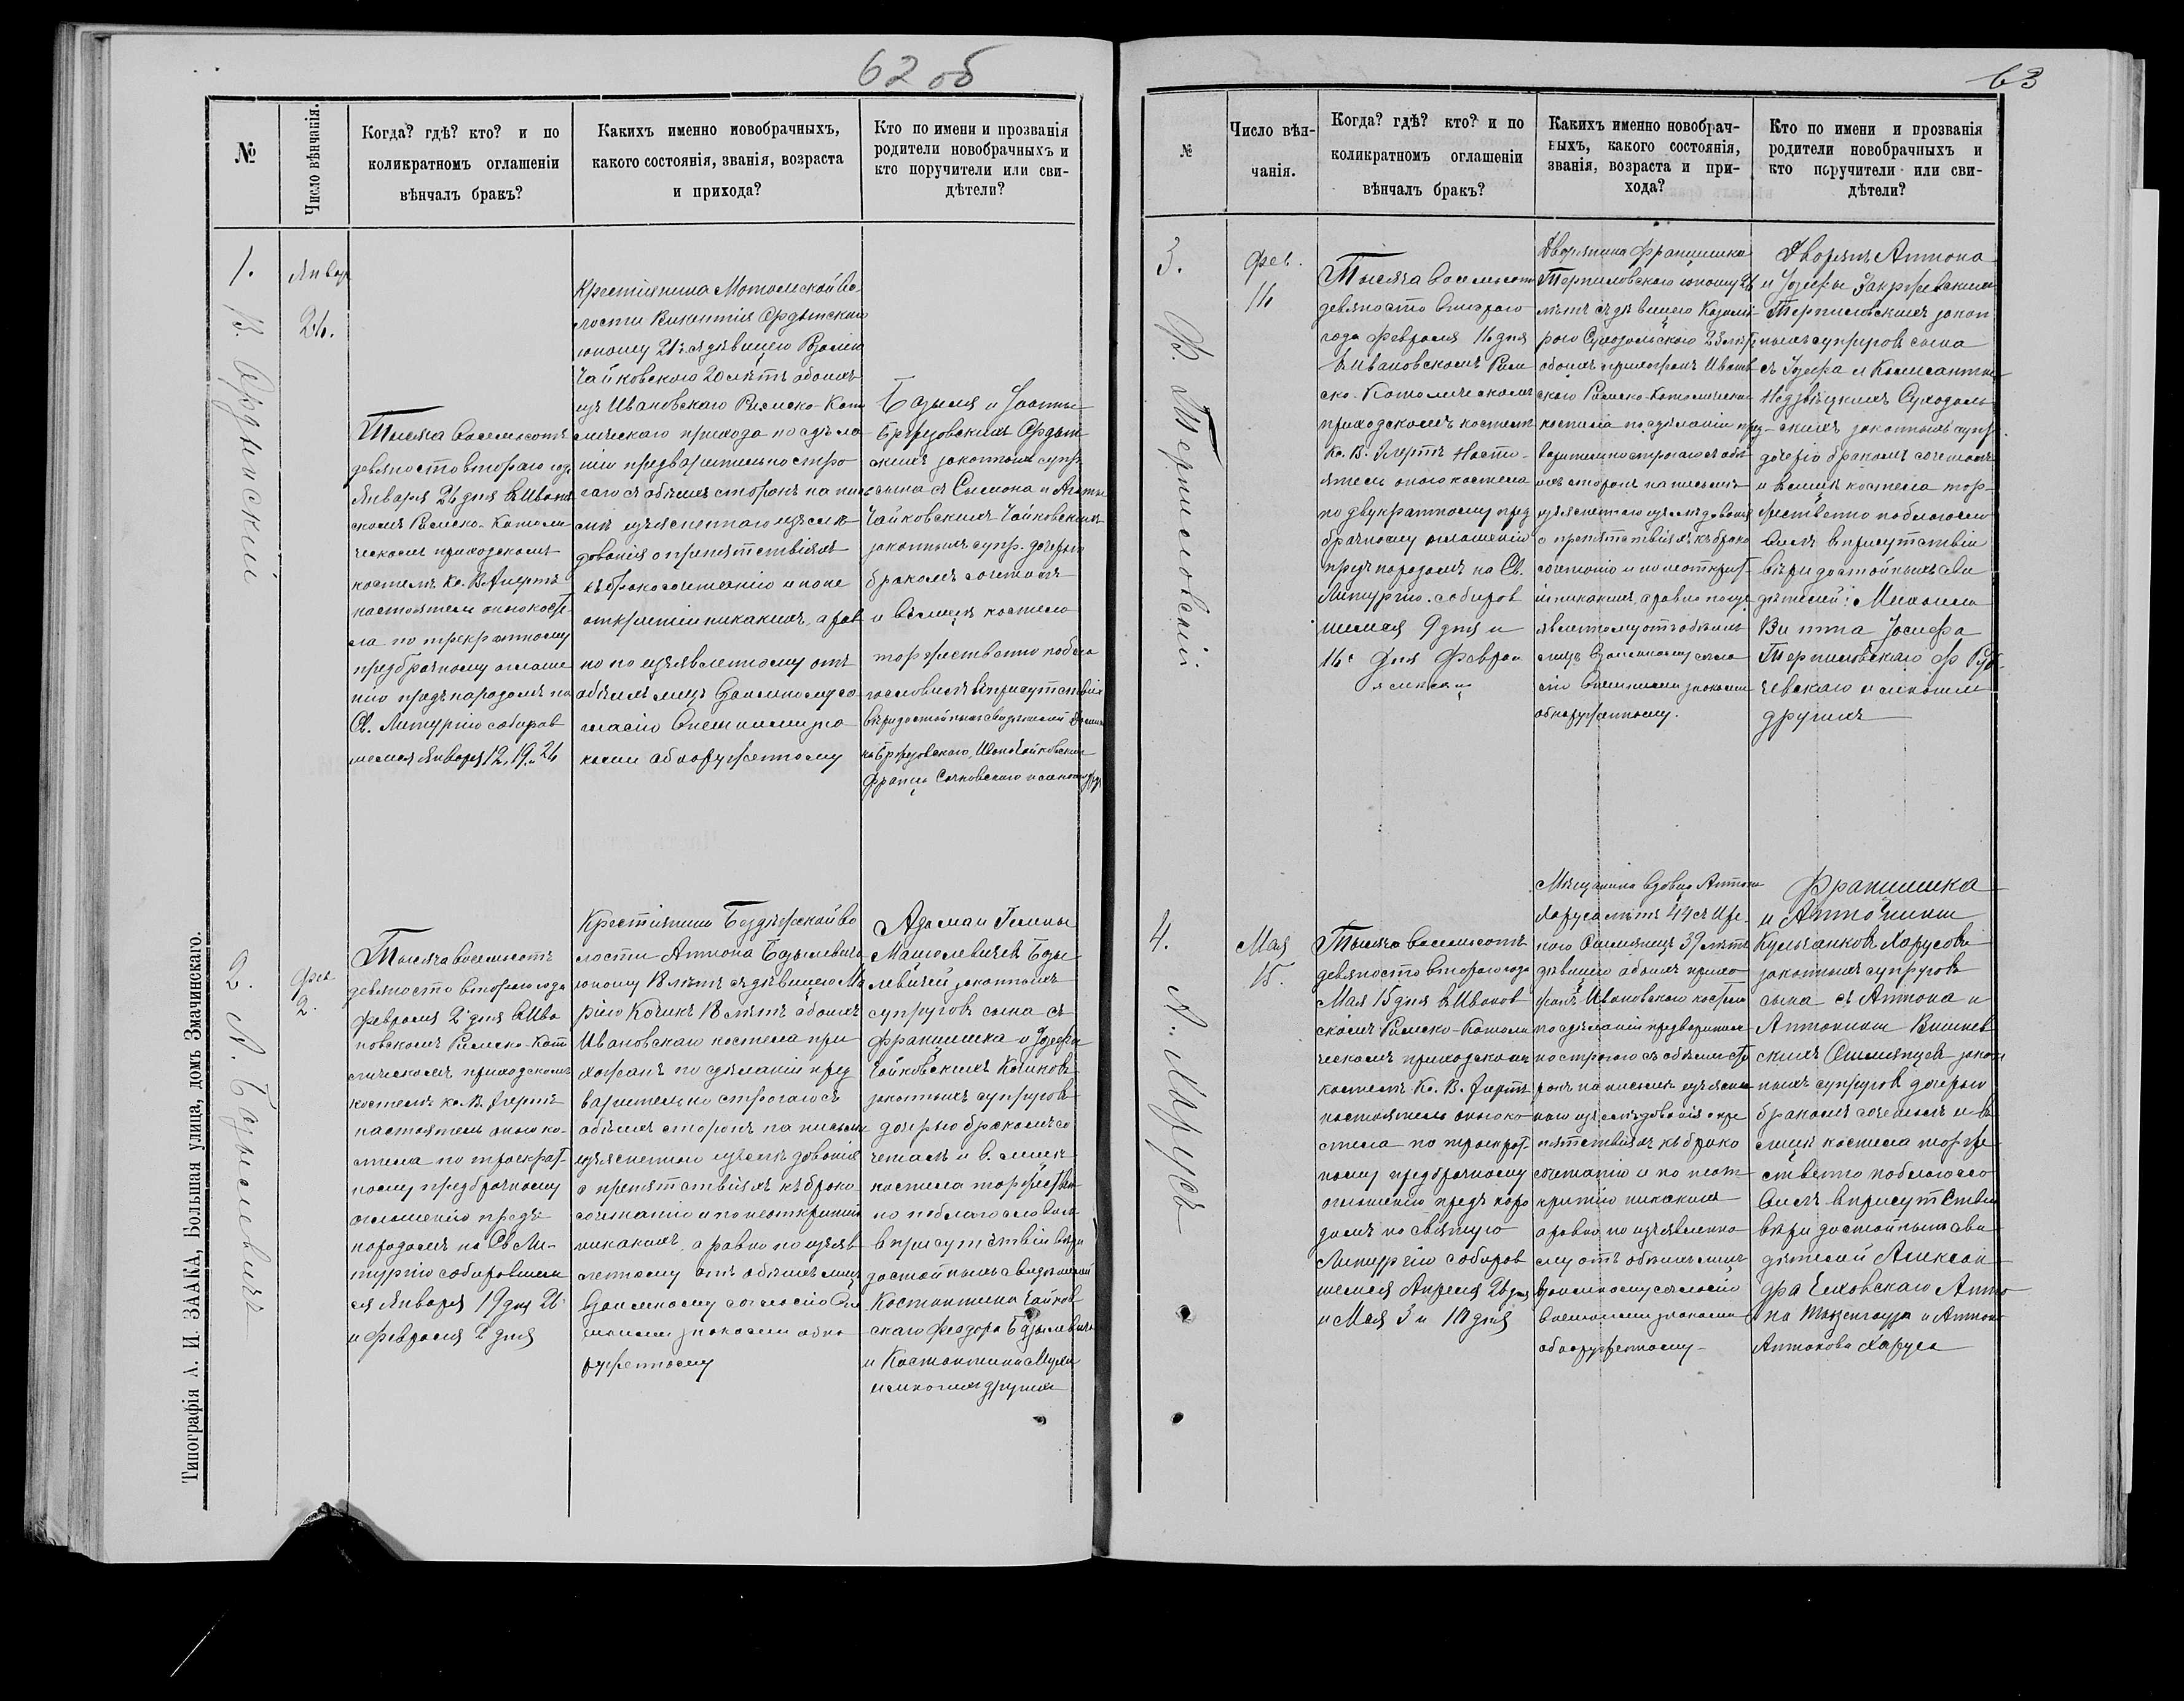 62 об
№
Число вѣнчанія.
Когда? гдѣ? кто? и по
коликратномъ оглашеніи
вѣнчалъ бракъ?
Какихъ именно новобрачныхъ,
какого состоянія, званія, возраста
и прихода?
Кто по имени и прозванія
родители новобрачныхъ и
кто поручители или сви-
дѣтели?
1.
В. Ордынскій
Январ
26.
Тысяча восемьсотъ
девяносто втораго года
Января 26 дня в Иванов
скомъ Римско-Католи
ческомъ приходскомъ
костелѣ Кс. В.
настоятель оного косте
ла по трекратному
предбрачному оглаше
нію предъ народомъ на
Св. Литургію собирав
шемся Января 12, 19 и 26
Крестіянина Мотольской Во
лости Викентія Ордынского
юношу 21 г. съ дѣвицею Розалію
Чайковского 20 лѣтъ обоихъ
изъ Ивановскаго Римско-Като
лическаго прихода по здѣла
ніи предварительно стро
гаго съ обѣихъ сторонъ на пись
мѣ изъясненного изслѣ
дованія о препятствіяхъ
къ бракосочетанію и по не
открытіи никакихъ, а рав
но по изъявленному отъ
обѣихъ лицъ взаимному со
гласію внешними зна
ками обнаруженному
Базыля и Іоанны
Бржозовскихъ Ордын
скихъ законныхъ супр.
сына съ Сымона и Агаты
Чайковскихъ Чайковскихъ
законныхъ супр. дочерью
бракомъ сочеталъ
и въ лицѣ костела
торжественно побла
гословилъ в присутствіи
вѣридостойныхъ свидѣтелей
Бржозовскаго, Ивана Чайковскаго
Франца Сачковского и многихъ др
2.
А. Базылевичъ
Фев
2.
Тысяча восемьсотъ
девяносто втораго года
Февраля 2 дня в Ива
новскомъ Римско-Като
лическомъ приходскомъ
костелѣ Кс. В.
настоятель оного ко-
стела по троекрат-
ному предбрачному
оглашенію предъ
народомъ на Св. Ли-
тургію собиравшем
ся Января 19 дня 26
и Февраля 2 дня
Крестіянина Бездѣжской во
лости Антона Базылевича
юношу 18 лѣтъ съ дѣвицею Ма
рію Кошкъ 18 лѣтъ обоихъ
Ивановскаго костела при
хожанъ по здѣланіи пред
варительно строгаго съ
обѣихъ сторонъ на письмѣ
изъясненного изслѣдованія
о препятствіяхъ къ брако
сочетанію и по неоткрытіи
никакихъ, а равно по изъяв
ленному отъ обѣихъ лицъ
взаимному согласію вне
шними знаками обна
руженному
Адама и Гелены
Базы
левичей законныхъ
супруговъ сына съ
Франциска и Іозефы
Чайковскихъ Кошковъ
законныхъ супруговъ
дочерью бракомъ со
четалъ и в. лицѣ
костела торжествен
но поблагословилъ
в присутствіи вѣри
достойныхъ свидѣтелей
Константина Чайков
скаго Феодора Базылевича
и Константина
и многихъ другихъ
Типографія А. И. ЗААКА, Большая улица, домъ Змачинскаго.
63
№
Число вѣн-
чанія.
Когда? гдѣ? кто? и по
коликратномъ оглашеніи
вѣнчалъ бракъ?
Какихъ именно новобрач-
ныхъ, какого состоянія,
званія, возраста и при-
хода?
Кто по имени и прозванія
родители новобрачныхъ и
кто поручители или сви-
дѣтели?
3.
Ф. Терписловскій
Фев.
16
Тысяча восемьсотъ
девяносто втораго
года Февраля 16 дня
в Ивановскомъ Рим
ско-Католическомъ
приходскомъ костелѣ
Кс. В. Насто-
ятель оного костела
по двукратному пред
брачному оглашенію
предъ народомъ на Св.
Литургію собирав
шемся 9 дня и
16 дня Феврал
я
Дворянина Франциска
юношу 26
лѣтъ съ дѣвицею
Суходольского 23 лѣтъ
обоихъ прихожанъ Иванов
скаго Римско-Католическа
костела по здѣланіи пред-
варительно строгаго съ обѣ
ихъ сторонъ на письмѣ
изъясненного изслѣдованія
о препятствіяхъ къ брако
сочетанію и по неоткрыт
іи никакихъ, а равно по изъ
явленному отъ обѣихъ
лицъ взаимному согла
сію внешними знаками
обнаруженному.
Дворянъ Антона
и Іозефы
закон
ныхъ супруговъ сына
съ Іозефа и
Суходоль
скихъ законныхъ супр
дочерью бракомъ сочеталъ
и в лицѣ костела тор-
жественно поблагосло
вилъ в присутствіи
вѣридостойныхъ сви
дѣтелей: Михаила
Іосифа
и многихъ
другихъ
4.
А. Харусъ
Мая
15.
Тысяча восемьсотъ
девяносто втораго года
Мая 15 дня в Иванов
скомъ Римско-Католи
ческомъ приходскомъ
костелѣ Кс. В.
настоятель оного ко
стела по троекрат-
ному предбрачному
оглашенію предъ наро
домъ на святую
Литургію собирав
шемся Апреля 26 дня
и Мая 3 и 10 дня
Мѣщанина вдовца Антона
Харуса лѣтъ 44 съ
39 лѣтъ
дѣвицею обоихъ прихо
жанъ Ивановского костела
по здѣланіи предварител
но строгаго съ обѣихъ сто
ронъ на письмѣ изъясне
ного изслѣдованія о пре
пятствіяхъ къ брако
сочетанію и по неот
крытію никакихъ
а равно по изъявленно
му отъ обѣихъ лицъ
взаимному согласію
внешними знаками
обнаруженному.
Франциска
и Антонины
Харусовъ
законныхъ супруговъ
сына съ Антона и
Антонины Вишнев
скихъ закон
ныхъ супруговъ дочерью
бракомъ сочеталъ и в
лицѣ костела торже
ственно поблагосло
вилъ в присутствіи
вѣридостойныхъ сви
дѣтелей Алексан
дра Анто
на и Антона
Антонова Харуса